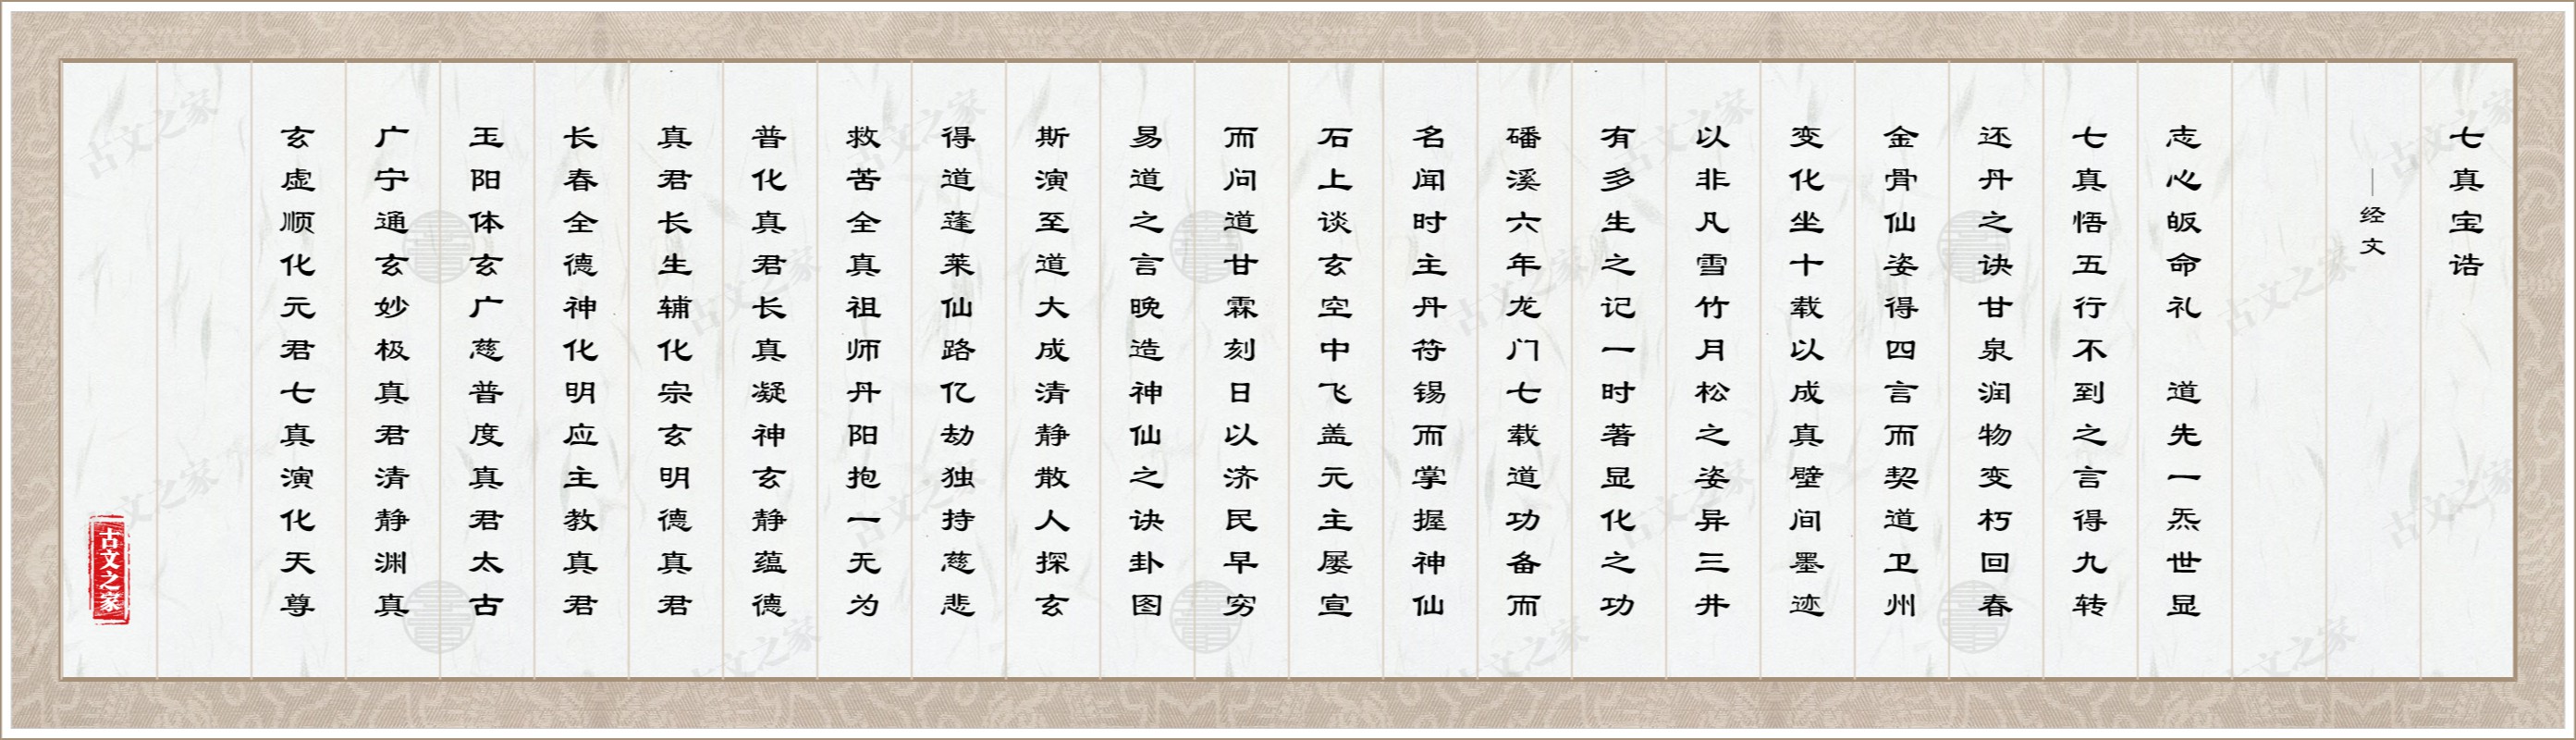 七真宝诰
｜经文
志心皈命礼　道先一炁世显
七真悟五行不到之言得九转
还丹之诀甘泉润物变朽回春
金骨仙姿得四言而契道卫州
变化坐十载以成真壁间墨迹
以非凡雪竹月松之姿异三井
有多生之记一时著显化之功
磻溪六年龙门七载道功备而
名闻时主丹符锡而掌握神仙
石上谈玄空中飞盖元主屡宣
而问道甘霖刻日以济民早穷
易道之言晚造神仙之诀卦图
斯演至道大成清静散人探玄
得道蓬莱仙路亿劫独持慈悲
救苦全真祖师丹阳抱一无为
普化真君长真凝神玄静蕴德
真君长生辅化宗玄明德真君
长春全德神化明应主教真君
玉阳体玄广慈普度真君太古
广宁通玄妙极真君清静渊真
玄虚顺化元君七真演化天尊
古文之家